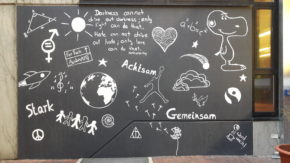 Darkness cannot
drive out darkness; only
light can do that.
Hate can not drive
out hate, only love
can do that
Achtsam
Stark
Gemeinsam